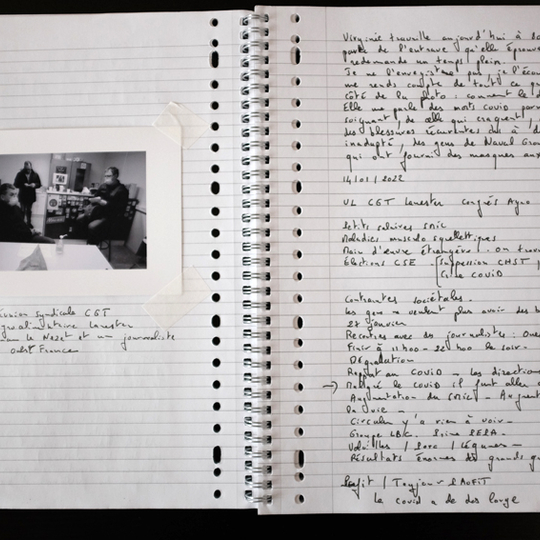 réunion syndicale CGT
agroalimentaire Lanester
le Nezet et un journaliste
Ouest France
Virginie travaille aujourd'hui à
parle de l'entrave qu'elle éprouve
redemande un temps plein.
Je ne l'enregistre pas, je l'écou
me rends compte de tout ce qu
côté de la photo : comment le d
Elle me parle des morts covid parm
soignant, de elle qui craquent,
des blessures récurentes du à d
inadapté, des gens de Naval Grou
qui ont fourni des masques aux
14/01/2022
UL CGT Lanester Congrés Agro
Petits salaires SMIC
Maladies musculo squelettiques
Main d'œuvre étrangère - On trav
Élections CSE - Suppression CHST
Crise COVID
Contraintes sociétales.
Les gens ne veulent plus avoir des b
27 janvier
Rencontres avec des journalistes : Oues
Finir à 21h00 - 22h00 le soir -
Dégradation
Rapport au COVID - Les directions
→ Malgré le covid il faut aller
Augmentation du SMIC - Augment
La vie -
Circulez y'a rien à voir -
Groupe LDC.
Volailles / / Légumes -
Résultats énormes des grands g
Profit / Toujours PROFIT
Le covid a de dos large